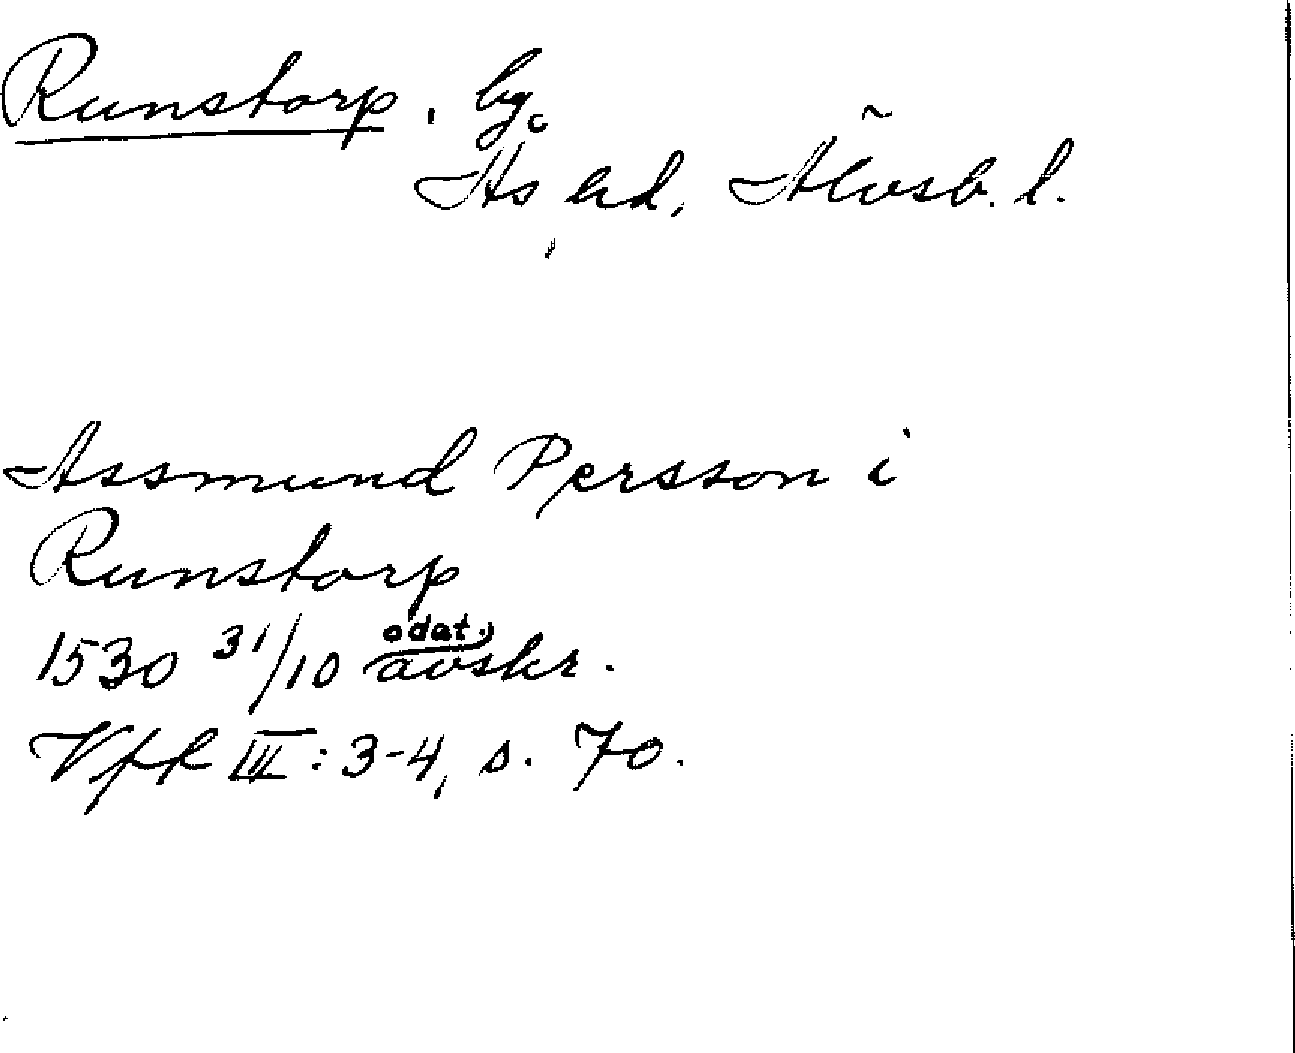 Runstorp, by.
Ås hd, Älvsb. l.
Assmund Persson i
Runstorp
1530 31/10 odat. avskr.
VFR III: 3-4, s. 70.